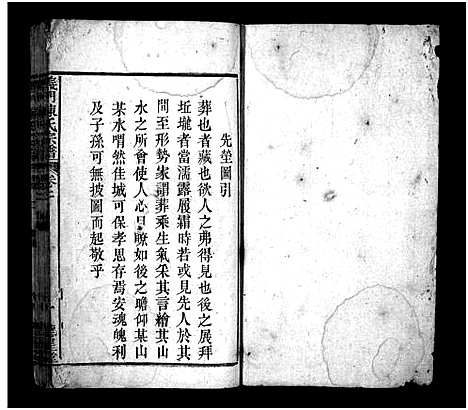 先塋圖引
葬也者藏也欲人之弗得見也後之展拜
坵壠者當濡露履霜時若或見先人於其
間至形勢家謂葬乘生氣采其言繪其山
水之所會使人心目瞭如後之瞻仰某山
某水喟然佳城可保孝思存焉安魂魄利
及子孫可無披圖而起敬乎
義門陳氏宗譜